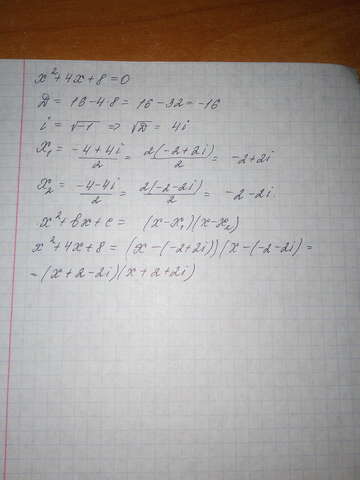 x²+4x+8=0
D = 16-4·8 = 16-32=-16
i = √-1 ⇒ √D = 4i
x₁ = (-4+4i)/2 = 2(-2+2i)/2 = -2+2i
x₂ = (-4-4i)/2 = 2(-2-2i)/2 = -2-2i.
x²+bx+c = (x-x₁)(x-x₂)
x²+4x+8 = (x-(-2+2i))(x-(-2-2i) =
-(x+2-2i)(x+2+2i)